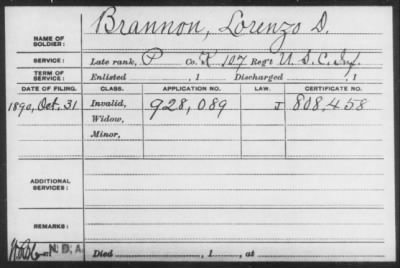 NAME OF SOLDIER: Brannon, Lorenzo D.
SERVICE: Late rank, P Co. K 107 Reg't U.S.C. Inf.
TERM OF SERVICE: Enlisted , 1 Discharged , 1
DATE OF FILING. CLASS. APPLICATION NO. LAW. CERTIFICATE NO.
1890, Oct. 31 Invalid, 928,089 J 808.458
Widow,
Minor,
ADDITIONAL SERVICES:
REMARKS:
N.D.A. Died , 1 , at